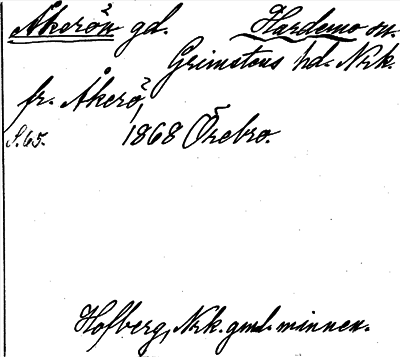 Åkerön gd. Hardemo sn.
Grimstens hd. Nrk.
fr. Åkerö,
S. 65. 1868 Örebro.
Hofberg, Nrk. gml. minnen.